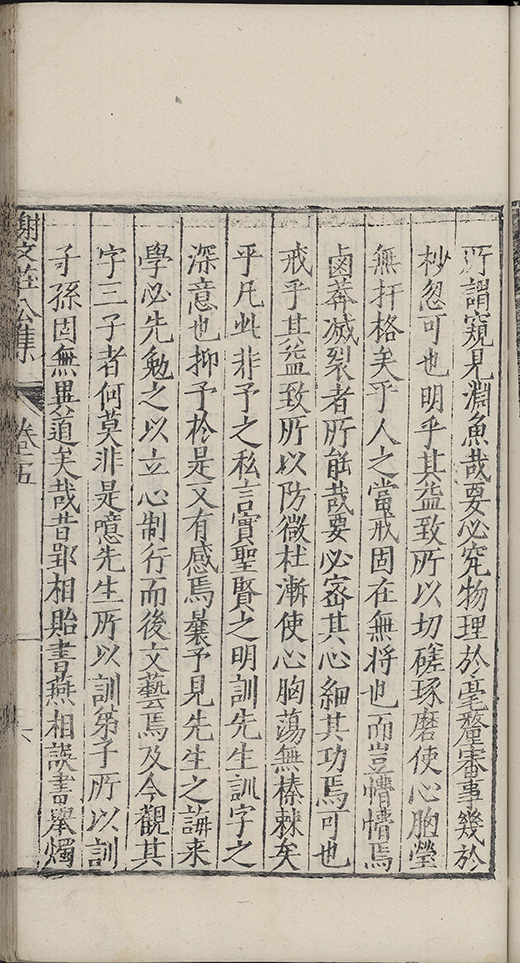 所謂窺見淵魚哉要必究物理於毫釐審事幾於
杪忽可也明乎其益致所以切磋琢磨使心胞瑩
無扞格矣乎人之當戒固在無将也而豈懵懵焉
鹵莽滅裂者所能哉要必宻其心細其功焉可也
戒乎其益致所以防微杜漸使心胸蕩無榛棘矣
乎凡此非予之私言實聖賢之明訓先生訓字之
深意也抑予於是又有感焉曩予見先生之誨来
學必先勉之以立心制行而後文藝焉及今觀其
字三子者何莫非是噫先生所以訓弟子所以訓
子孫固無異道矣哉昔郢相貽書燕相説書舉燭
謝文莊公集 卷之五 六